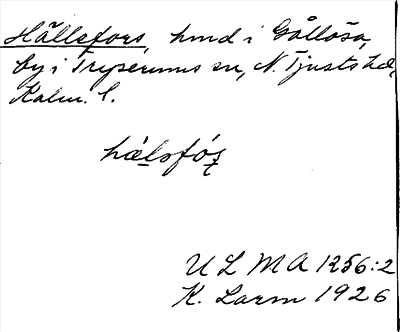 Hällefors, hmd i Gållösa,
by i Tryserums sn, N. Tjusts hd,
Kalm. l.
hälsfós
ULMA 1256:2
K. Larm 1926